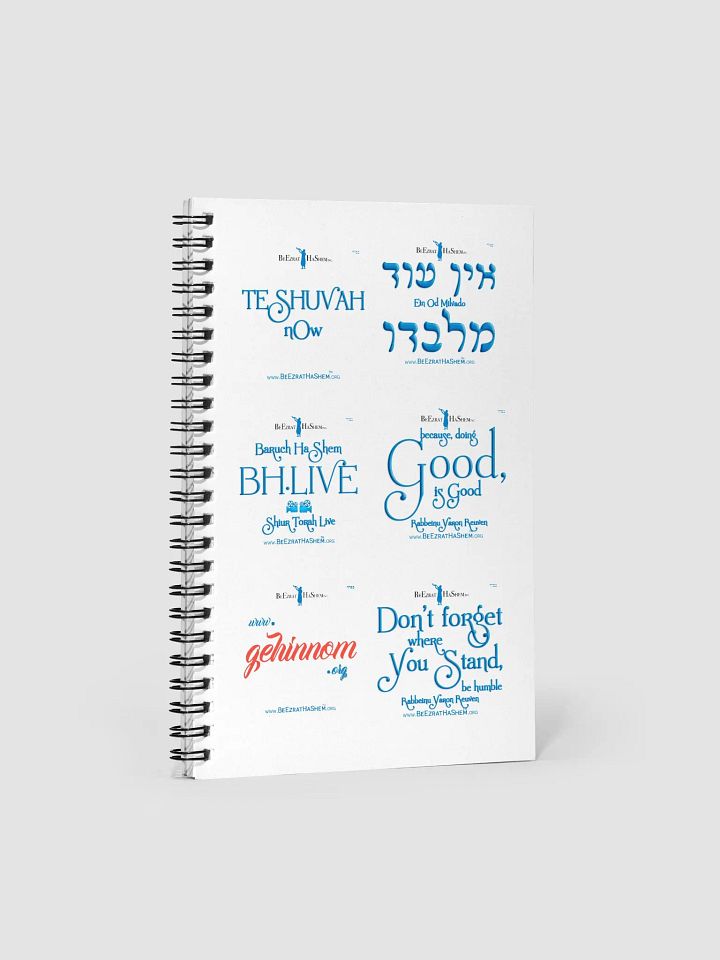 BeEzrat HaShem Inc.
TESHUVAH
nOw
www.BeEzratHaShem.org
BeEzrat HaShem Inc.
אין עוד
Ein Od Milvado
מלבדו
www.BeEzratHaShem.org
BeEzrat HaShem Inc.
Baruch HaShem
BH.LIVE
Shiur Torah Live
www.BeEzratHaShem.org
BeEzrat HaShem Inc.
because, doing
Good,
is Good
Rabbeinu Yaron Reuven
www.BeEzratHaShem.org
BeEzrat HaShem Inc.
www.
gehinnom
.org
www.BeEzratHaShem.org
BeEzrat HaShem Inc.
Don't forget
where
You Stand,
be humble
Rabbeinu Yaron Reuven
www.BeEzratHaShem.org